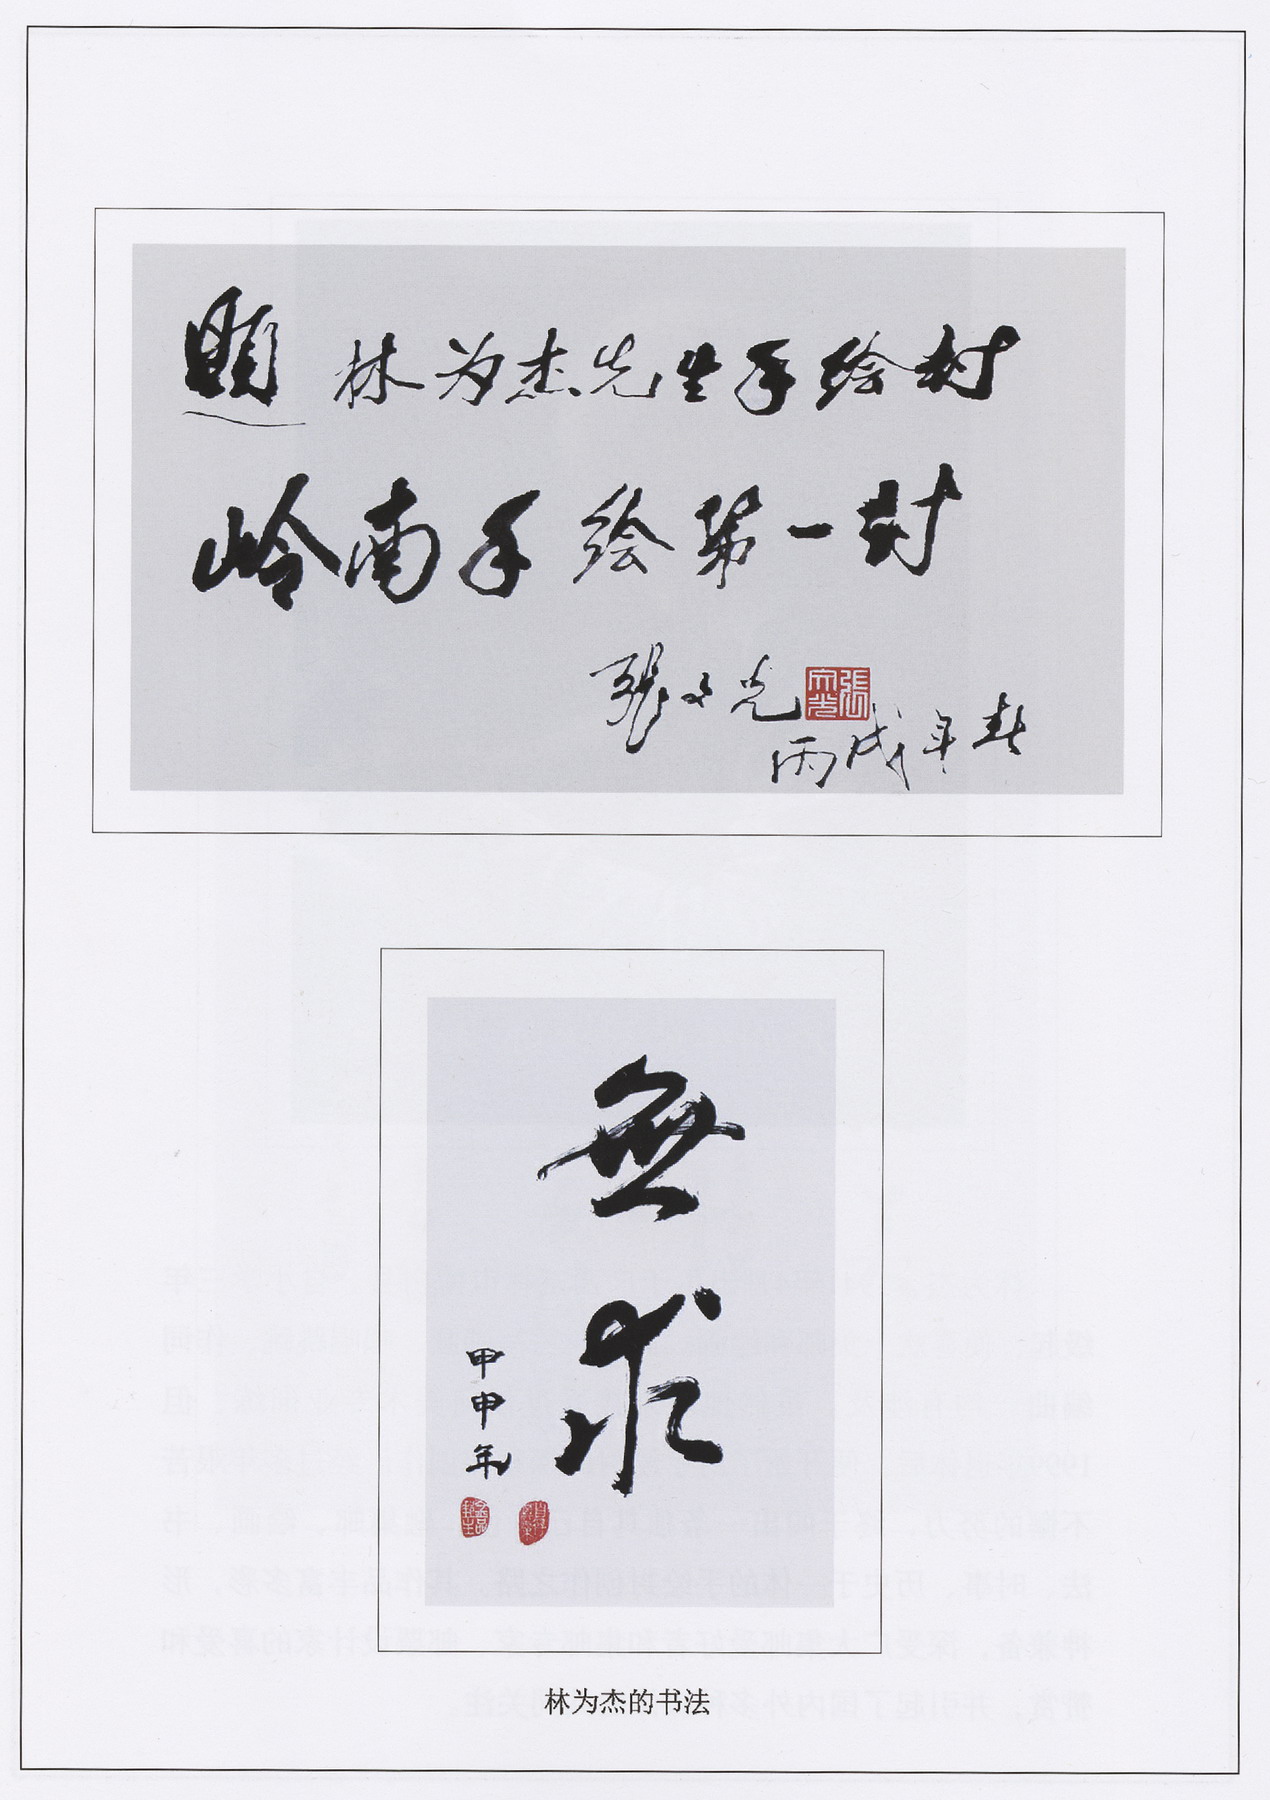 题 林为杰先生手绘封
岭南手绘第一封
張文光
張文光
丙戌年春
無求
甲申年
林为杰的书法